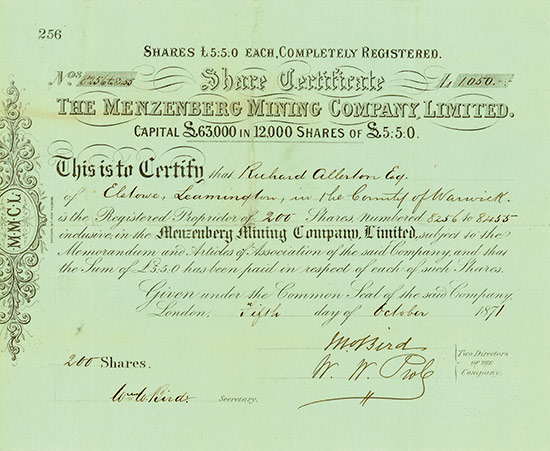 256
SHARES £5:5:0 EACH, COMPLETELY REGISTERED.
Nos 8256 to 8455 Share Certificate £ 1050.–
THE MENZENBERG MINING COMPANY, LIMITED.
CAPITAL £63,000 IN 12,000 SHARES OF £5:5:0.
This is to Certify that Richard Allerton Esq.
of Elstowe, Leamington, in the County of Warwick.
is the Registered Proprietor of 200 Shares numbered 8256 to 8455
inclusive, in the Menzenberg Mining Company, Limited, subject to the
Memorandum and Articles of Association of the said Company, and that
the Sum of £5.5.0 has been paid in respect of each of such Shares.
Given under the Common Seal of the said Company.
London, Fifth day of October 1871
200 Shares.
Bird
W. W.
Two Directors
OF THE
Company.
Bird. Secretary.
M.M.C.L.